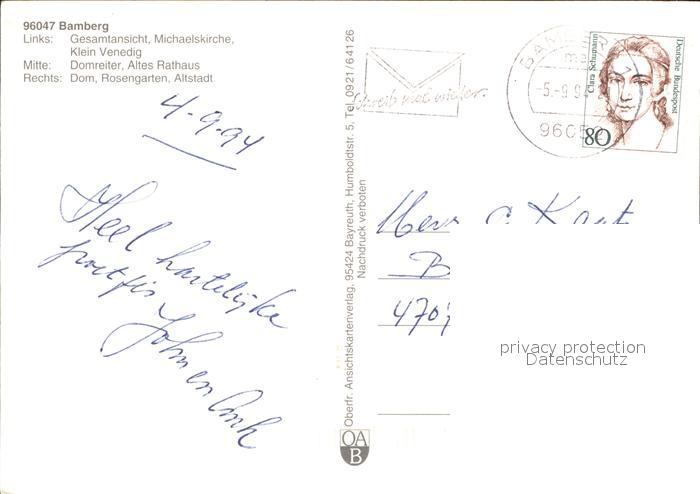 96047 Bamberg
Links: Gesamtansicht, Michaelskirche,
Klein Venedig
Mitte: Domreiter, Altes Rathaus
Rechts: Dom, Rosengarten, Altstadt
4-9-94
Heel hartelijke
Oberfr. Ansichtskartenverlag, 95424 Bayreuth, Humboldtstr. 5, Tel. 0921/64126
Nachdruck verboten
OA
B
Schreib mal wieder.
BAMBERG
-5.-9.94
9605
Clara Schumann
Deutsche Bundespost
80
B
470
privacy protection
Datenschutz